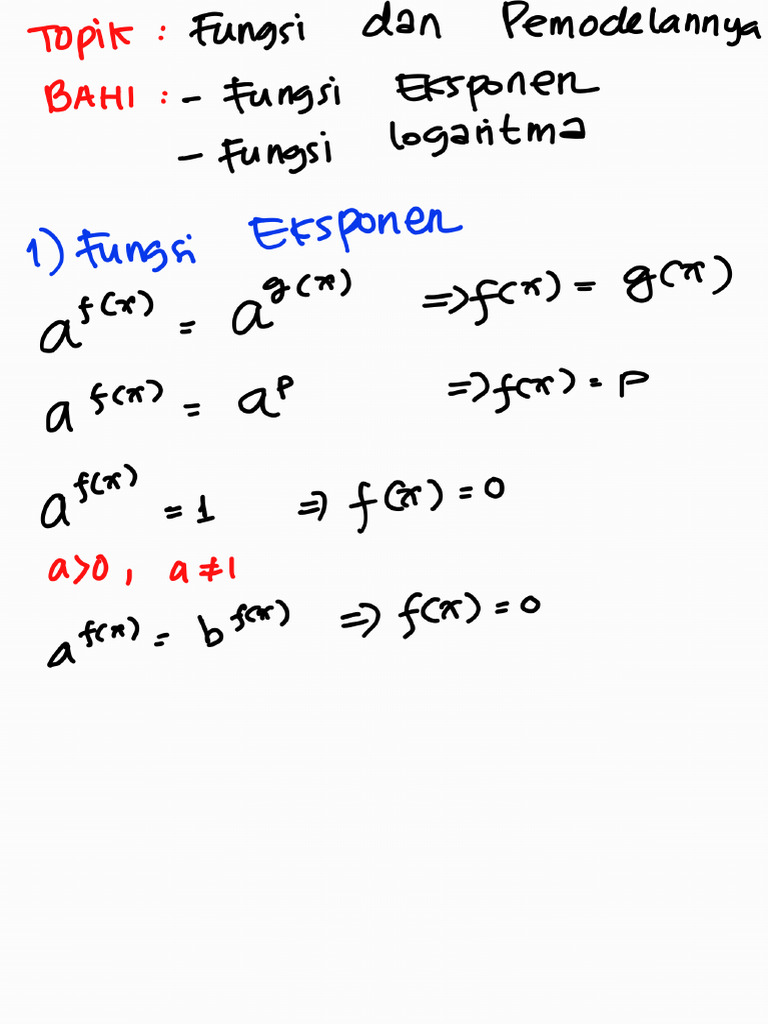 Topik : Fungsi dan Pemodelannya
BAHI : - Fungsi Eksponen
- Fungsi logaritma
1) Fungsi Eksponen
a^f(x) = a^g(x) ⇒ f(x) = g(x)
a^f(x) = a^p ⇒ f(x) = P
a^f(x) = 1 ⇒ f(x) = 0
a>0, a≠1
a^f(x) = b^f(x) ⇒ f(x) = 0